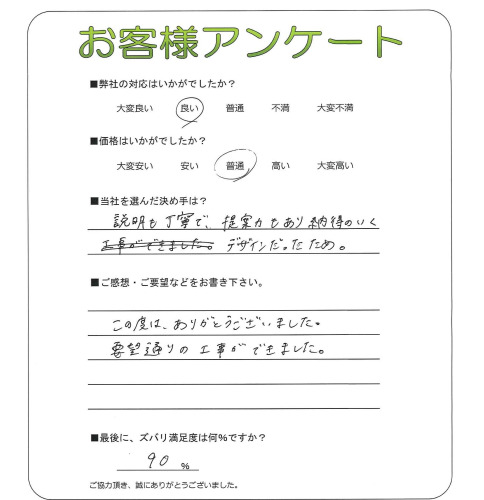 お客様アンケート
■弊社の対応はいかがでしたか？
大変良い 良い 普通 不満 大変不満
■価格はいかがでしたか？
大変安い 安い 普通 高い 大変高い
■当社を選んだ決め手は？
説明も丁寧で、提案力もあり納得のいく
工事ができました。デザインだったため。
■ご感想・ご要望などをお書き下さい。
この度は、ありがとうございました。
要望通りの工事ができました。
■最後に、ズバリ満足度は何%ですか？
90 %
ご協力頂き、誠にありがとうございました。